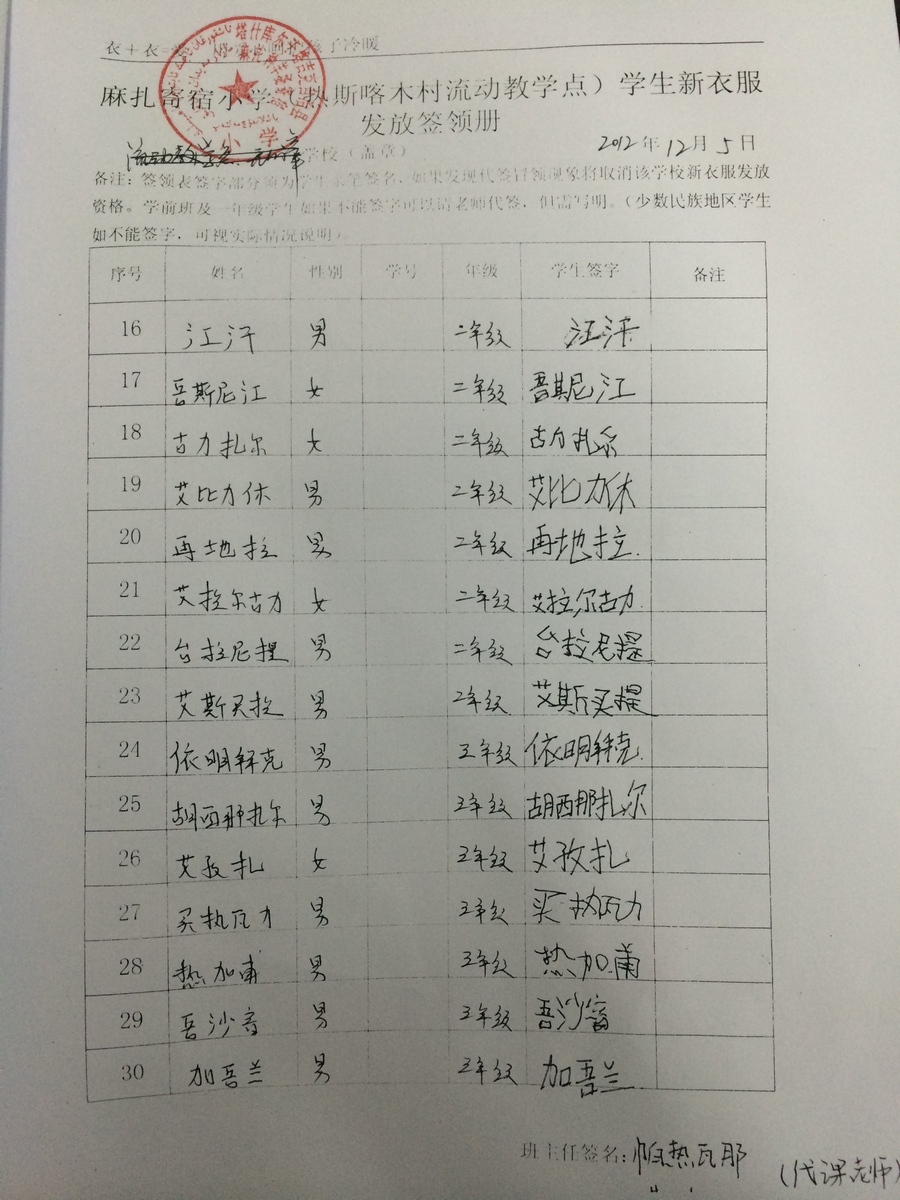 麻扎寄宿小学（热斯喀木村流动教学点）学生新衣服
发放签领册
2012年12月5日
学校（盖章）
备注：签领表签字部分须为学生亲笔签名，如果发现代签冒领现象将取消该学校新衣服发放
资格。学前班及一年级学生如果不能签字可以请老师代签，但需写明。（少数民族地区学生
如不能签字，可视实际情况说明）
序号 姓名 性别 学号 年级 学生签字 备注
16 江汗 男 二年级 江汗
17 吾斯尼江 女 二年级 吾斯尼江
18 古力扎尔 女 二年级 古力扎尔
19 艾比力休 男 二年级 艾比力休
20 再地拉 男 二年级 再地拉
21 艾拉尔古力 女 二年级 艾拉尔古力
22 台拉尼提 男 二年级 台拉尼提
23 艾斯买拉 男 二年级 艾斯买提
24 依明拜克 男 三年级 依明拜克
25 胡西那扎尔 男 三年级 胡西那扎尔
26 艾孜扎 女 三年级 艾孜扎
27 买热瓦力 男 三年级 买热瓦力
28 热加甫 男 三年级 热加甫
29 吾沙音 男 三年级
30 加吾兰 男 三年级 加吾兰
班主任签名：帕热瓦那
（代课老师）